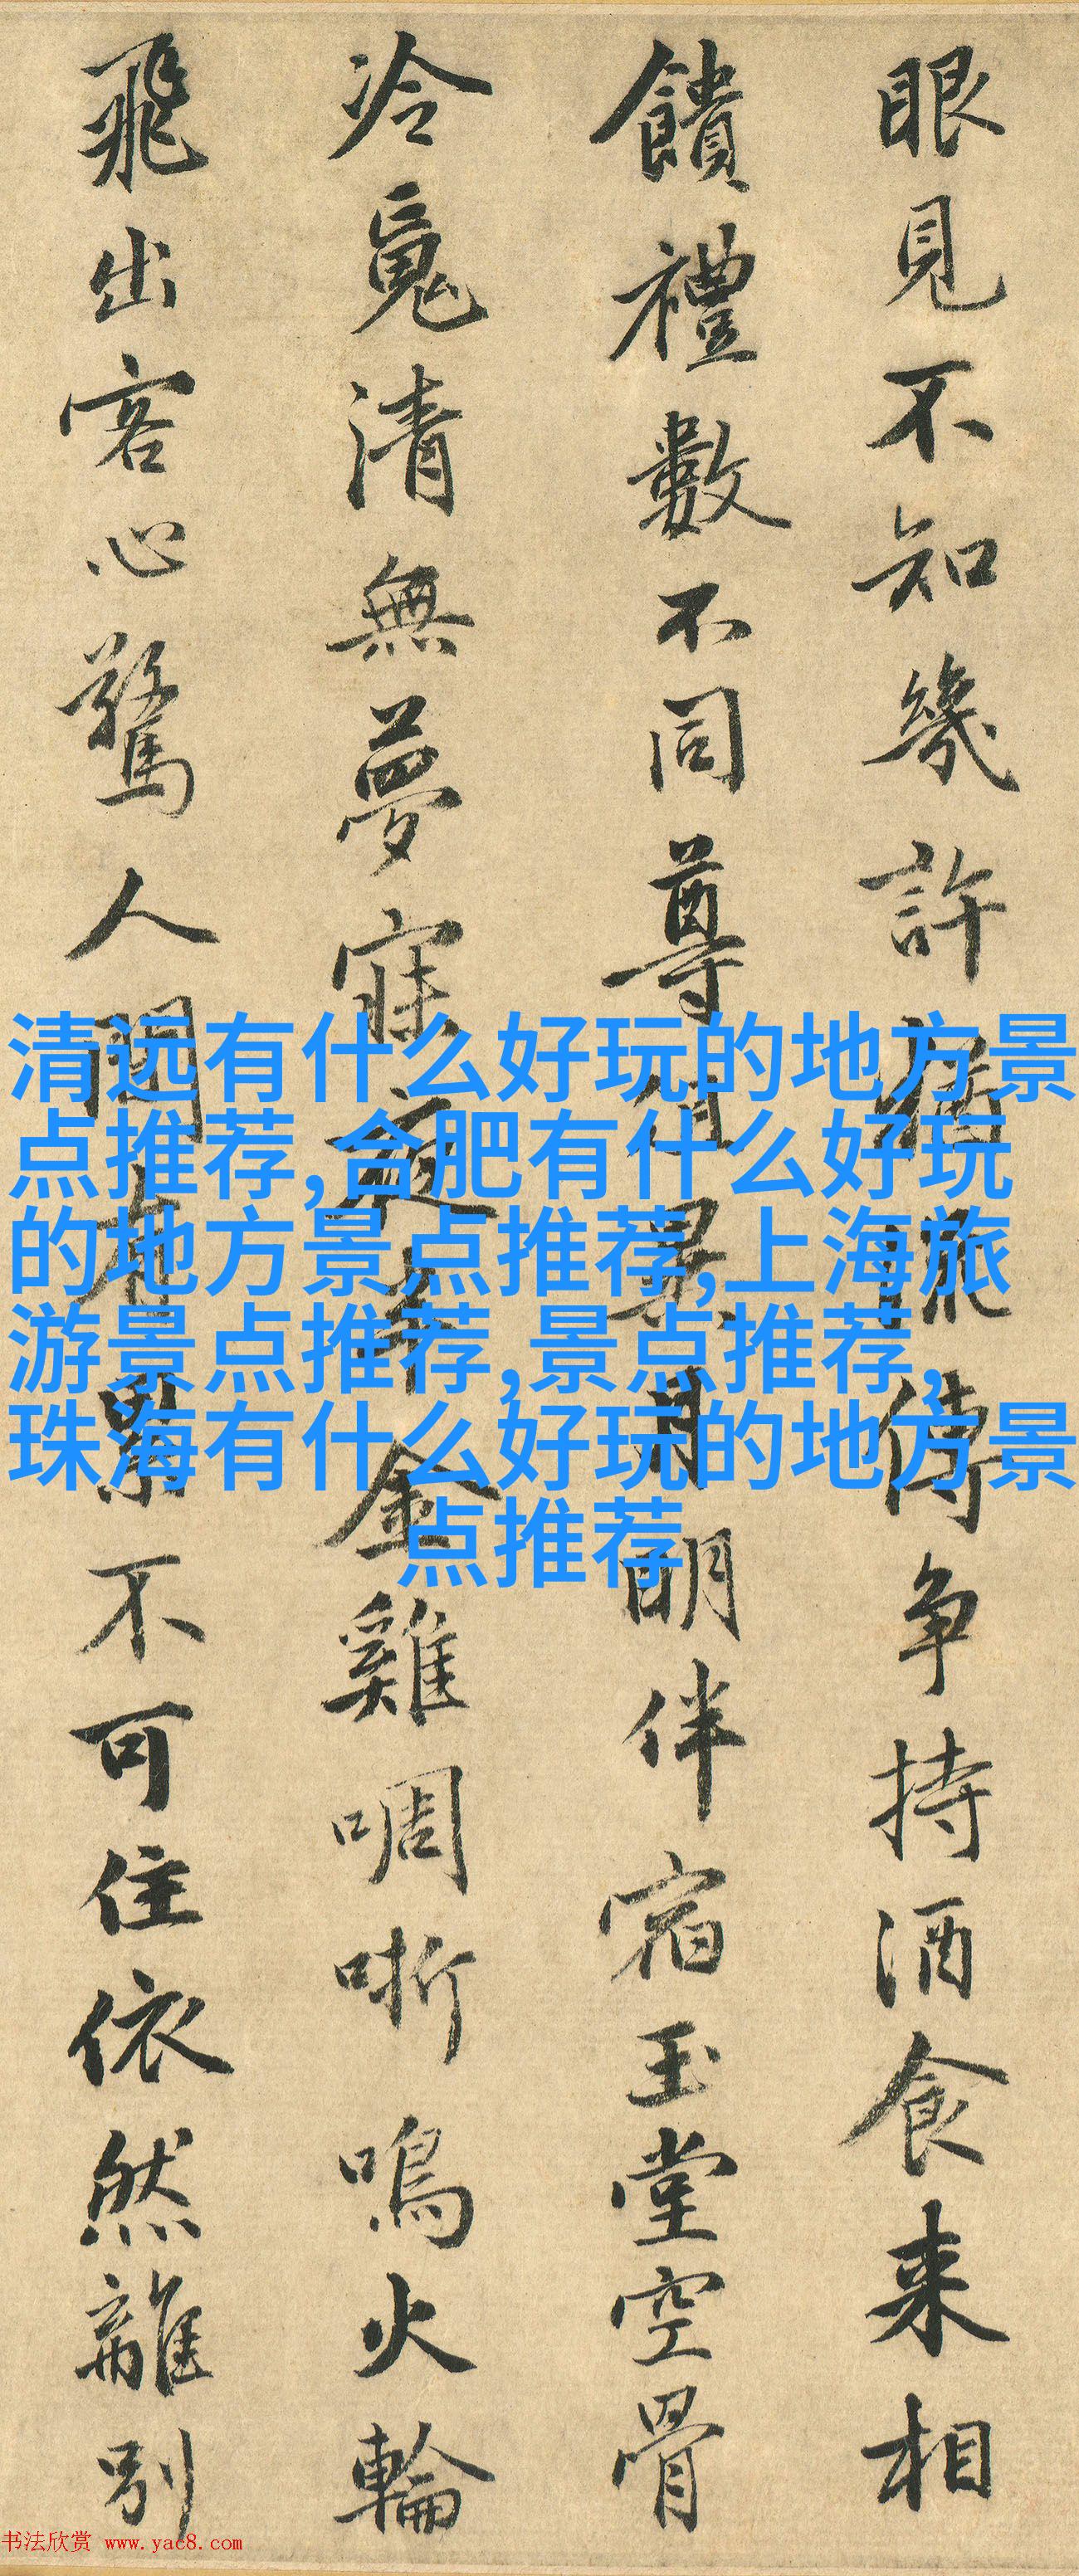 眼見不知幾許猶流傳争持酒食来相
饋禮數不同尊俎異月明伴宿玉堂空骨
冷䰟清無夢寐夜半金雞啁哳鳴火輪
飛出客心驚人間有累不可住依然離別
清远有什么好玩的地方景
点推荐,合肥有什么好玩
的地方景点推荐,上海旅
游景点推荐,景点推荐,
珠海有什么好玩的地方景
点推荐
书法欣赏 www.yac8.com